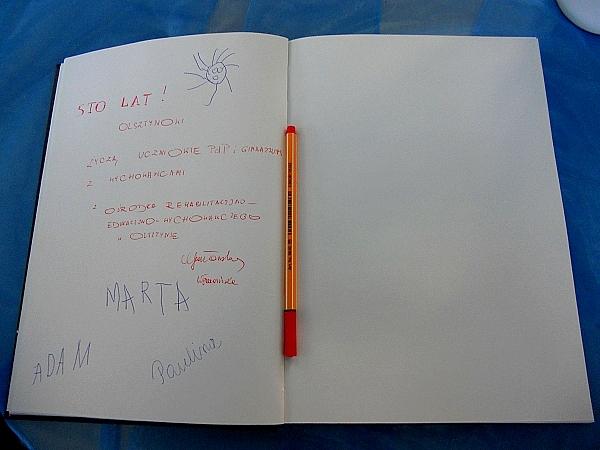 STO LAT!
OLSZTYNOWI
ŻYCZĄ UCZNIOWIE PdP i GIMNAZJUM
Z WYCHOWANCAMI
Z OŚRODKA REHABILITACYJNO-
EDUKACYJNO-WYCHOWAWCZEGO
W OLSZTYNIE
MARTA
ADAM
Paulina